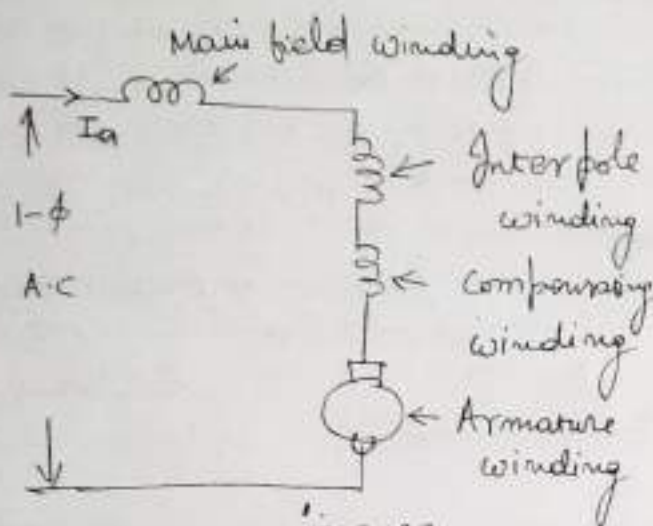 Main field winding
Ia
1-ϕ
A.C
Interpole
winding
Compensating
winding
Armature
winding